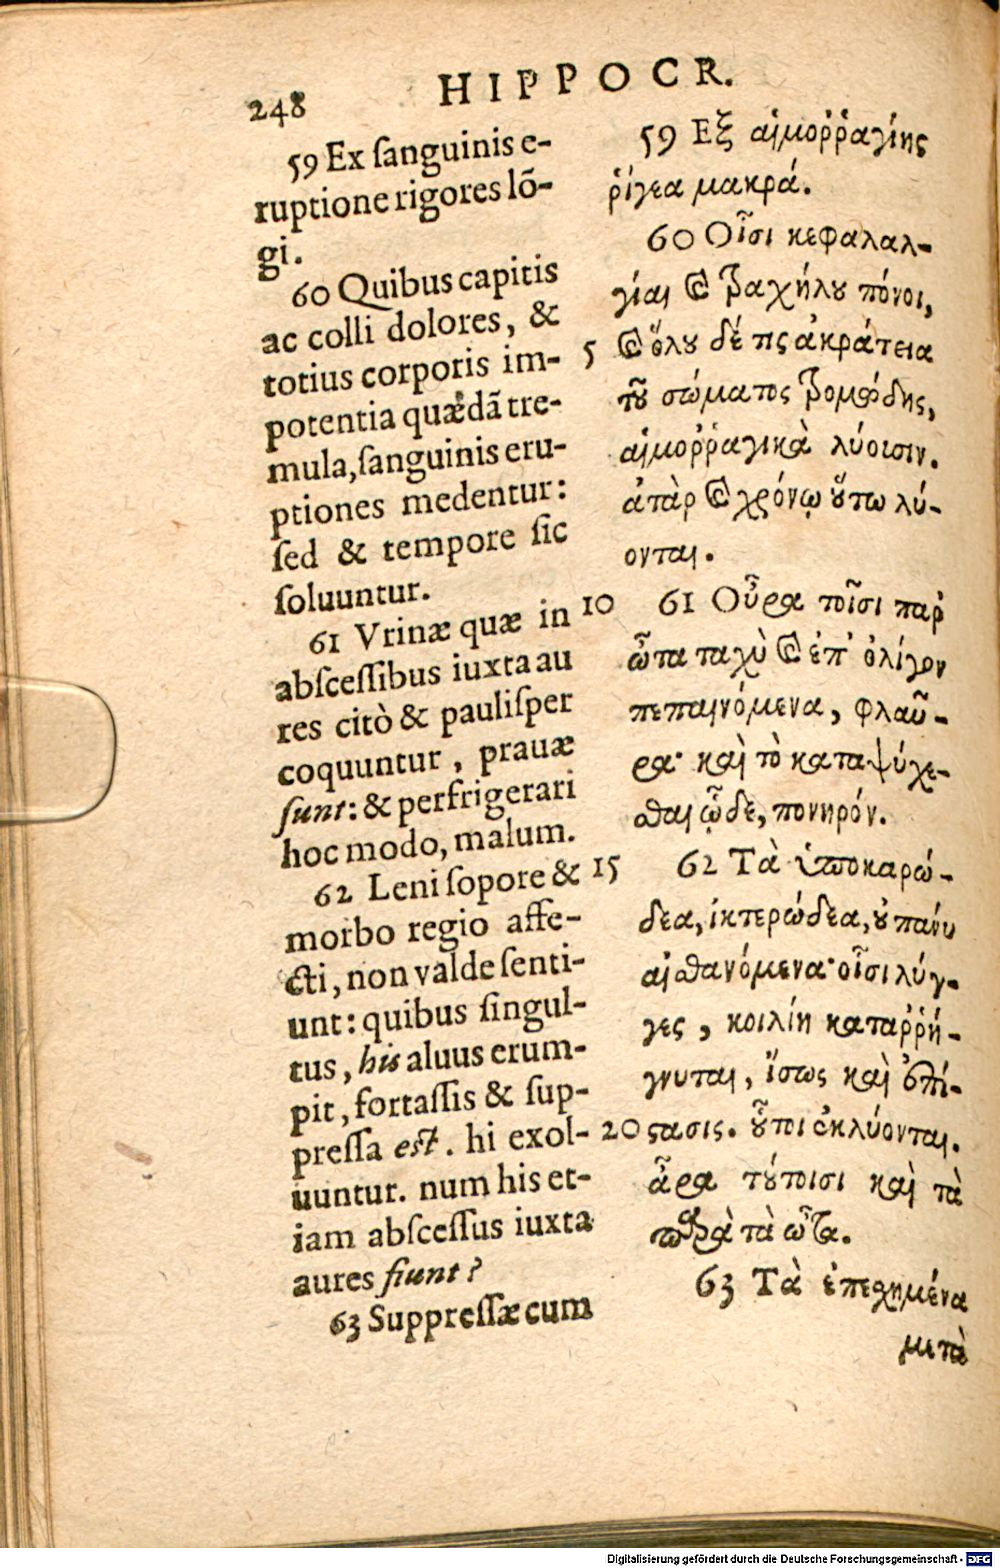 248
HIPPOCR.
59 Ex ſanguinis e-
ruptione rigores lõ-
gi.
60 Quibus capitis
ac colli dolores, &
totius corporis im-
potentia quædã tre-
mula, ſanguinis eru-
ptiones medentur:
ſed & tempore ſic
ſoluuntur.
61 Vrinæ quæ in
abſceſſibus iuxta au
res citò & pauliſper
coquuntur, prauæ
ſunt: & perfrigerari
hoc modo, malum.
62 Leni ſopore &
morbo regio affe-
cti, non valde ſenti-
unt: quibus ſingul-
tus, his aluus erum-
pit, fortaſſis & ſup-
preſſa eſt. hi exol-
uuntur. num his et-
iam abſceſſus iuxta
aures fiunt?
63 Suppreſſæ cum
59 Εξ αἱμοῤῥαγίης
ῥίγεα μακρά.
60 Οἷσι κεφαλαλ-
γίαι καὶ τραχήλου πόνοι,
5 καὶ ὅλου δέ τις ἀκράτεια
τοῦ σώματος τρομώδης,
αἱμοῤῥαγικὰ λύουσιν.
ἀτὰρ καὶ χρόνῳ οὕτω λύ-
ονται.
10 61 Οὖρα τοῖσι παρ'
ὦτα ταχὺ καὶ ἐπ' ὀλίγον
πεπαινόμενα, φλαῦ-
ρα· καὶ τὸ καταψύχε-
σθαι ᾧδε, πονηρόν.
15 62 Τὰ ὑποκαρώ-
δεα, ἰκτερώδεα, οὐ πάνυ
αἰσθανόμενα· οἷσι λύγ-
γες, κοιλίη καταῤῥή-
γνυται, ἴσως καὶ ἐπί-
20 στασις. οὗτοι ἐκλύονται.
ἆρα τούτοισι καὶ τὰ
παρὰ τὰ ὦτα.
63 Τὰ ἐπεχημένα
μετὰ
Digitalisierung gefördert durch die Deutsche Forschungsgemeinschaft - DFG